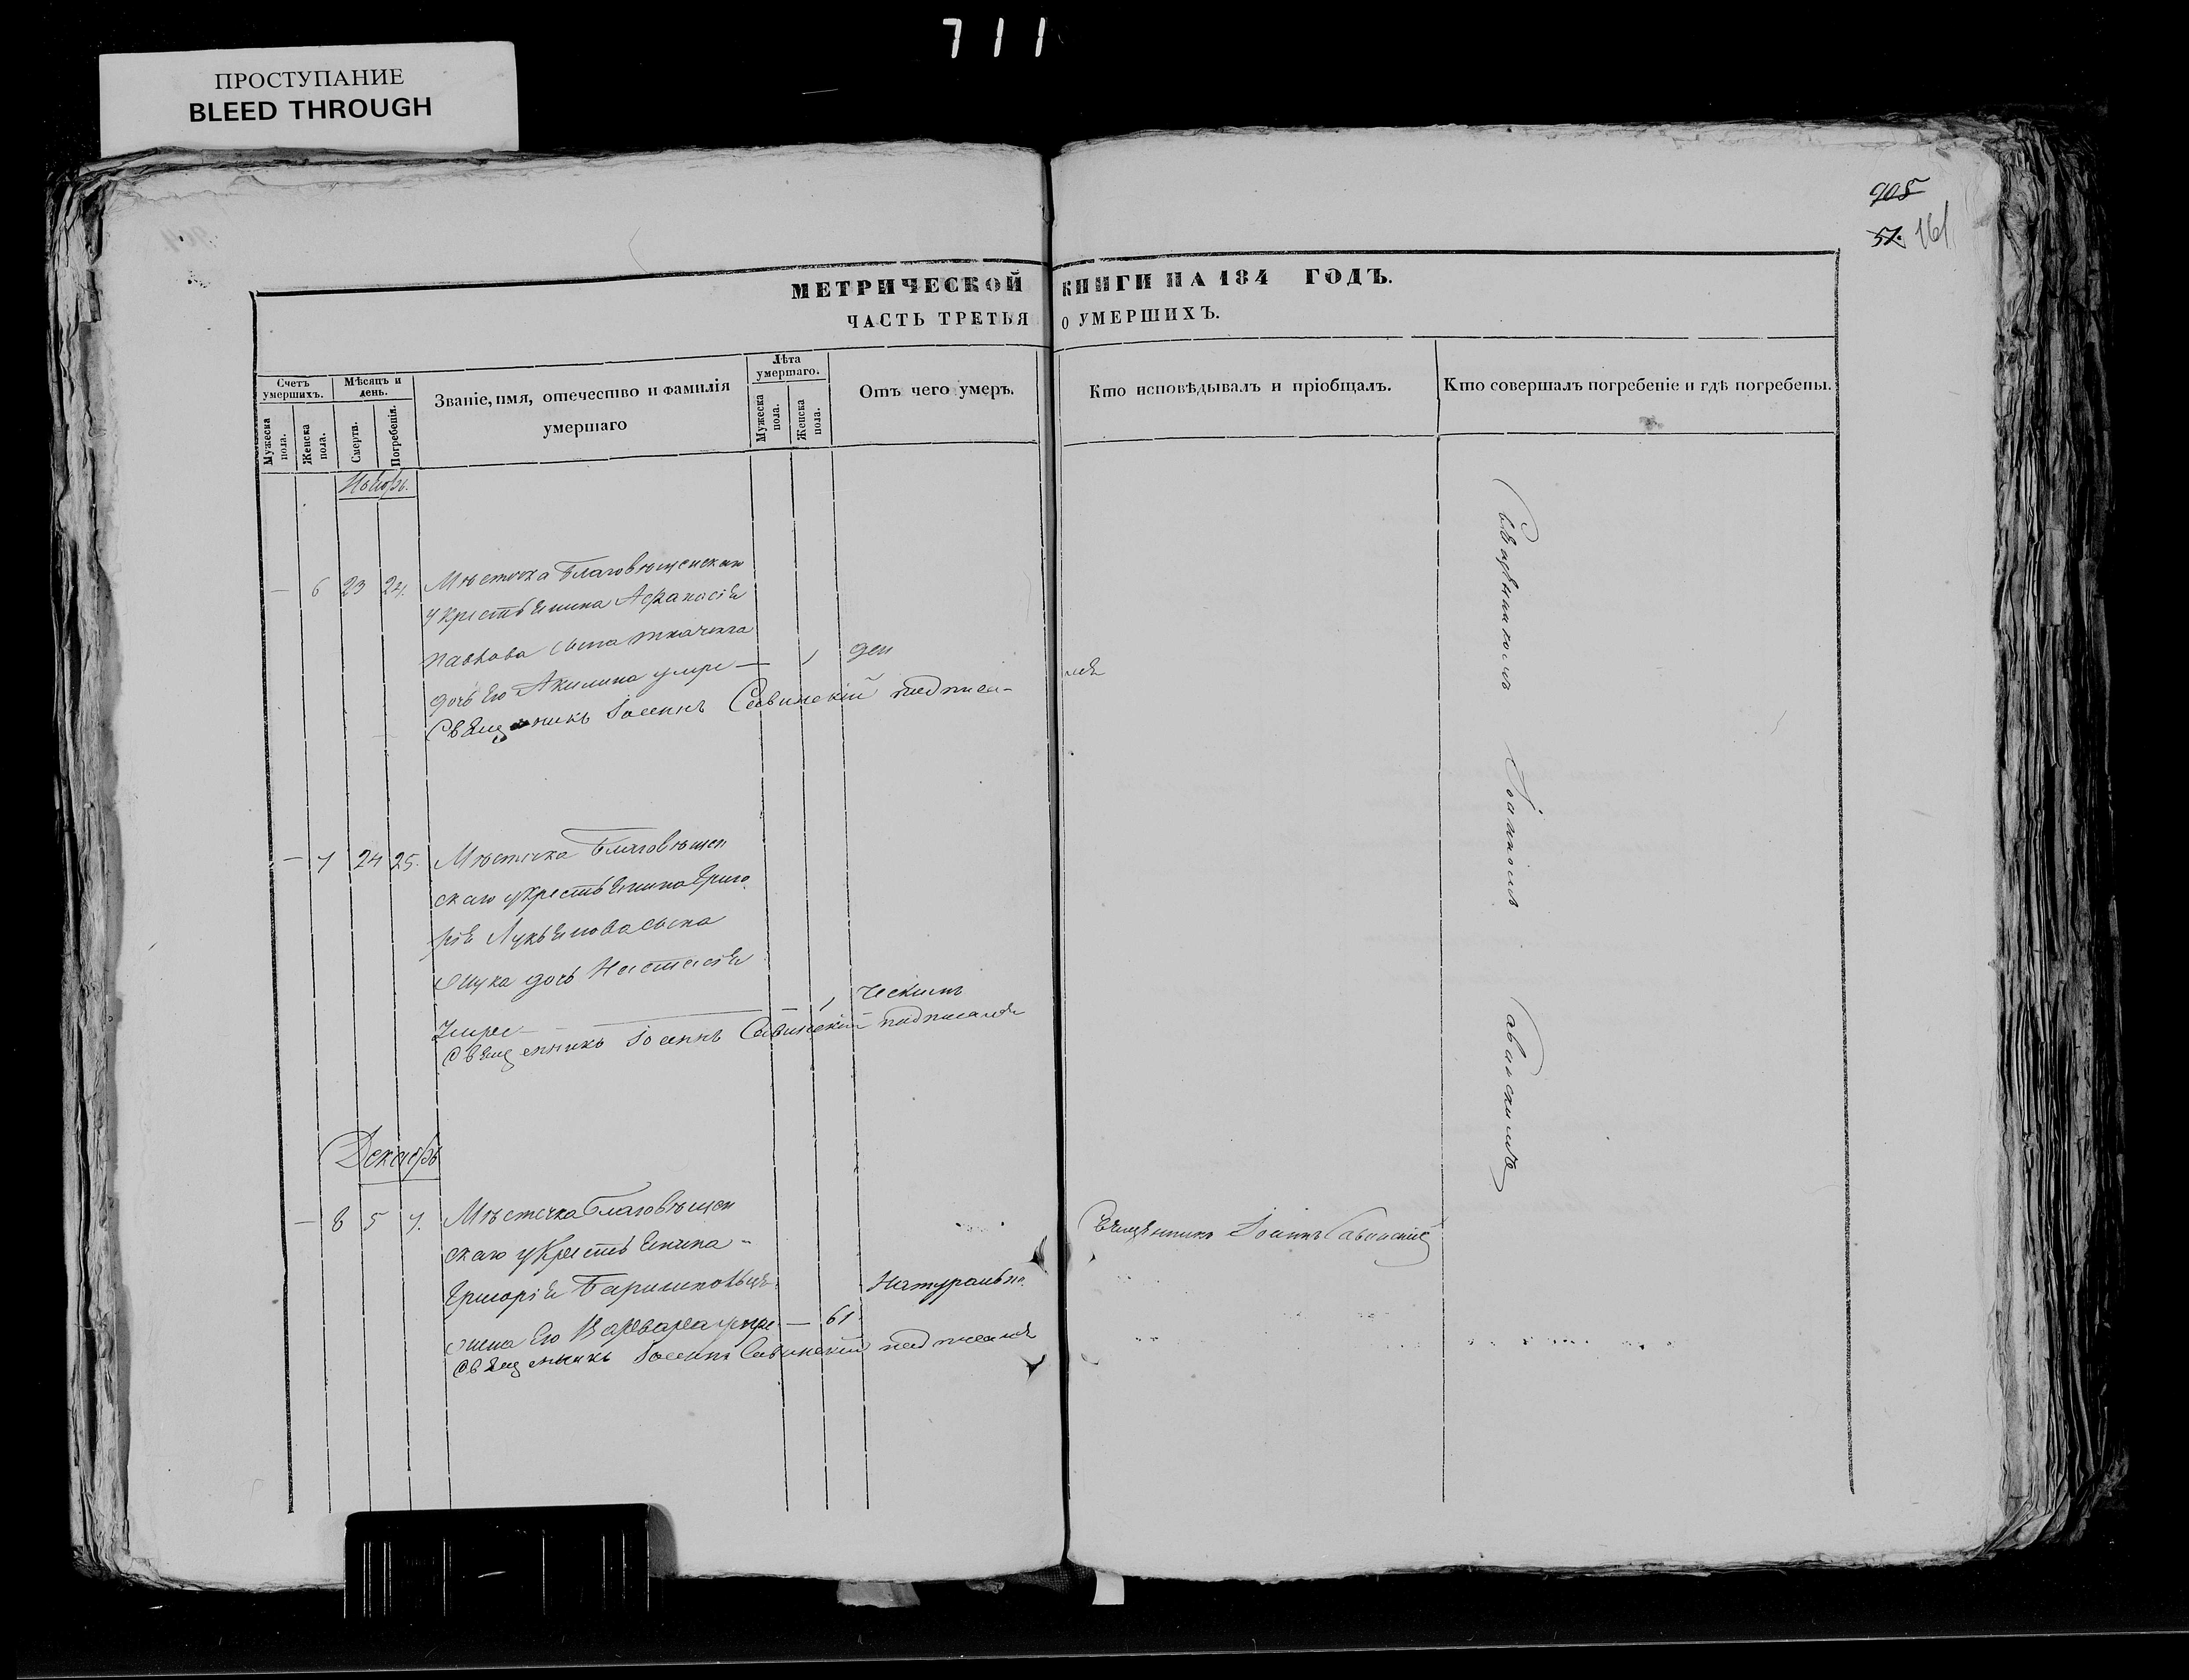 711
ПРОСТУПАНИЕ
BLEED THROUGH
905
57. 161
МЕТРИЧЕСКОЙ КНИГИ НА 184 ГОДЪ.
ЧАСТЬ ТРЕТЬЯ О УМЕРШИХЪ.
Счетъ умершихъ.
Мужеска пола.
Женска пола.
Мѣсяцъ и день.
Смерти.
Погребенія.
Званіе, имя, отечество и фамилія
умершаго
Лѣта умершаго.
Мужеска пола.
Женска пола.
Отъ чего умеръ.
Кто исповѣдывалъ и пріобщалъ.
Кто совершалъ погребеніе и гдѣ погребены.
Ноябрь.
— 6 23 24. Мѣстечка Благовѣщенскаго
у крестьянина Афанасія
Павлова сына Ткачука
дочь Его Акилина умре — 1
Священникъ Іоаннъ Савинскій подписался
— 7 24 25. Мѣстечка Благовѣщен
скаго у крестьянина Григо
рія Лукьянова сына
дочь Настасія
Умре — 1
Священникъ Іоаннъ Савинскій подписался
Декабрь
— 8 5 7. Мѣстечка Благовѣщен
скаго у Крестьянина
Григорія
жена Его Варвара умре — 61 Натурально
Священникъ Іоаннъ Савинскій подписался
Священникъ Іоаннъ Савинскій
Священникомъ Іоанномъ Савинскимъ